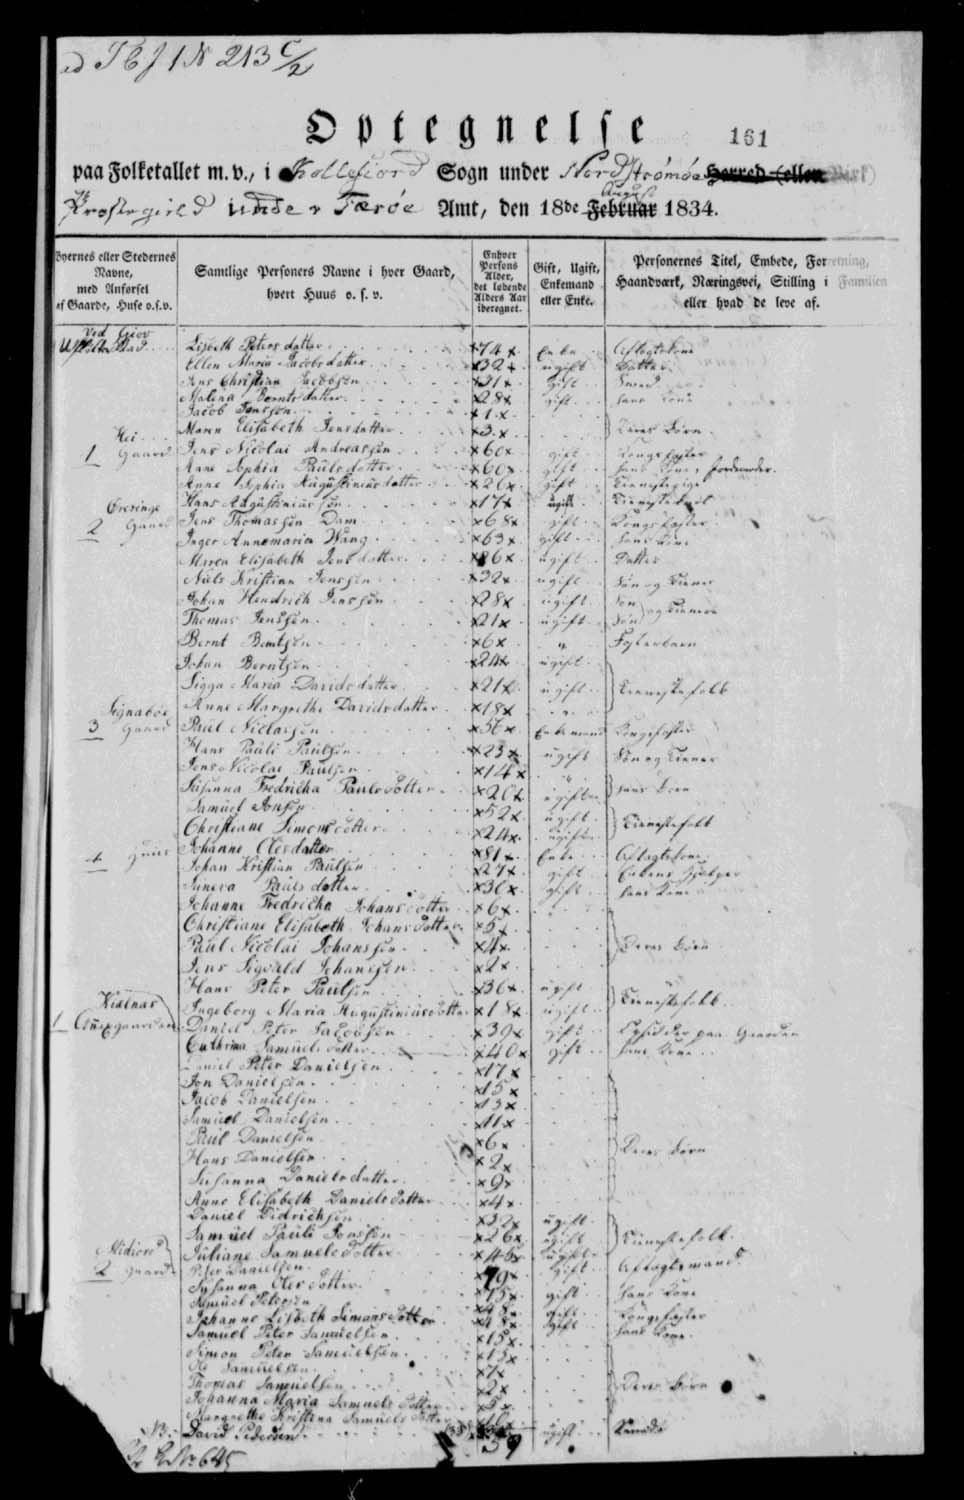 J C J 1 N 213 C/2
Optegnelse
161
paa Folketallet m. v., i Kollefiord Sogn under Nordstrømøe Herred (eller Birk)
Prostegield under Færøe Amt, den 18de August Februar 1834.
Byernes eller Stedernes Navne, med Anførsel af Gaarde, Huse o.s.v.
Samtlige Personers Navne i hver Gaard, hvert Huus o. s. v.
Enhver Persons Alder, det løbende Alders Aar iberegnet.
Gift, Ugift, Enkemand eller Enke.
Personernes Titel, Embede, Forretning, Haandværk, Næringsvei, Stilling i Familien eller hvad de leve af.
Ved Giov Lisbeth Peters datter 74 Enke Aftægtskone
Ellen Maria Jacobs datter 32 ugift Datter
Jens Christian Jacobsen 31 gift
Malena Bernts datter 28 gift hans Kone
Jacob Jenssen 1
Maren Elisabeth Jensdatter 3 deres Børn
Hei
1 Gaard Jens Nicolai Andreassen 60 gift Kongsfæster
Anne Sophia Pauls datter 60 gift hans Kone
Anne Sophia Augustinius datter 26 gift Tienestepige
Hans Augustiniussen 17 ugift Tienestekarl
Oreringe
2 Gaard Jens Thomassen Dam 68 gift Kongsfæster
Inger Annemaria Wang 63 gift hans Kone
Maren Elisabeth Jens datter 26 ugift Datter
Niels Kristian Jenssen 32 ugift Søn og Tiener
Johan Hendrich Jenssen 28 ugift Søn
Thomas Jenssen 21 ugift Søn og Tienere
Bernt Berntsen 6 " Fosterbarn
Johan Berntsen 24 ugift
Sigga Maria Davids datter 21 ugift Tienestefolk
Anne Margrethe Davidsdatter 18
Signabøe
3 Gaard Paul Niclassen 56 Enkemand Kongsfæster
Hans Pauli Paulsen 23 ugift Søn og Tiener
Jens Nicolai Paulsen 14 "
Susanna Fredricka Pauls dotter 20 ugift hans Børn
Samuel Jonsen 52 ugift
Christiane Simons dotter 24 ugift Tienestefolk
Huus Johanne Oles datter 81 Enke Aftægtskone
Johan Kristian Paulsen 27 gift
Suneva Pauls datter 30 gift hans Kone
Johanne Fredricka Johans dotter 6
Christiane Elisabeth Johans dotter 5
Paul Nicolai Johanssen 4 Deres Børn
Jens Sigvald Johanssen 2
Hans Peter Paulsen 36 ugift
Ingeborg Maria Augustinius dotter 18 ugift Tienestefolk
Kialnas
1 Annexgaarden Daniel Peter Jacobsen 39 gift Opsidder paa Gaarden
Cathrina Samuels dotter 40 gift hans Kone
Daniel Peter Danielsen 17
Jon Danielsen 15
Jacob Danielsen 13
Samuel Danielsen 11
Paul Danielsen 6
Hans Danielsen 2 Deres Børn
Susanna Daniels datter 9
Anne Elisabeth Daniels dotter 4
Daniel Didrichsen 32 ugift
Samuel Pauli Jonssen 26 ugift Tienestefolk
Juliane Samuels dotter 46 ugift
2 Gaard Peter Danielsen 79 gift Aftægtsmand
Susanna Oles dotter 75 gift hans Kone
Samuel Petersen 48 gift Kongsfæster
Johanne Lisbeth Simons dotter 48 gift hans Kone
Samuel Peter Samuelsen 15
Simon Peter Samuelsen 13
Ole Samuelsen 7
Thomas Samuelsen 2 Deres Børn
Johanna Maria Samuels dotter 5
Margrethe Kristina Samuels dotter
David Pedersen ugift
59
No 645